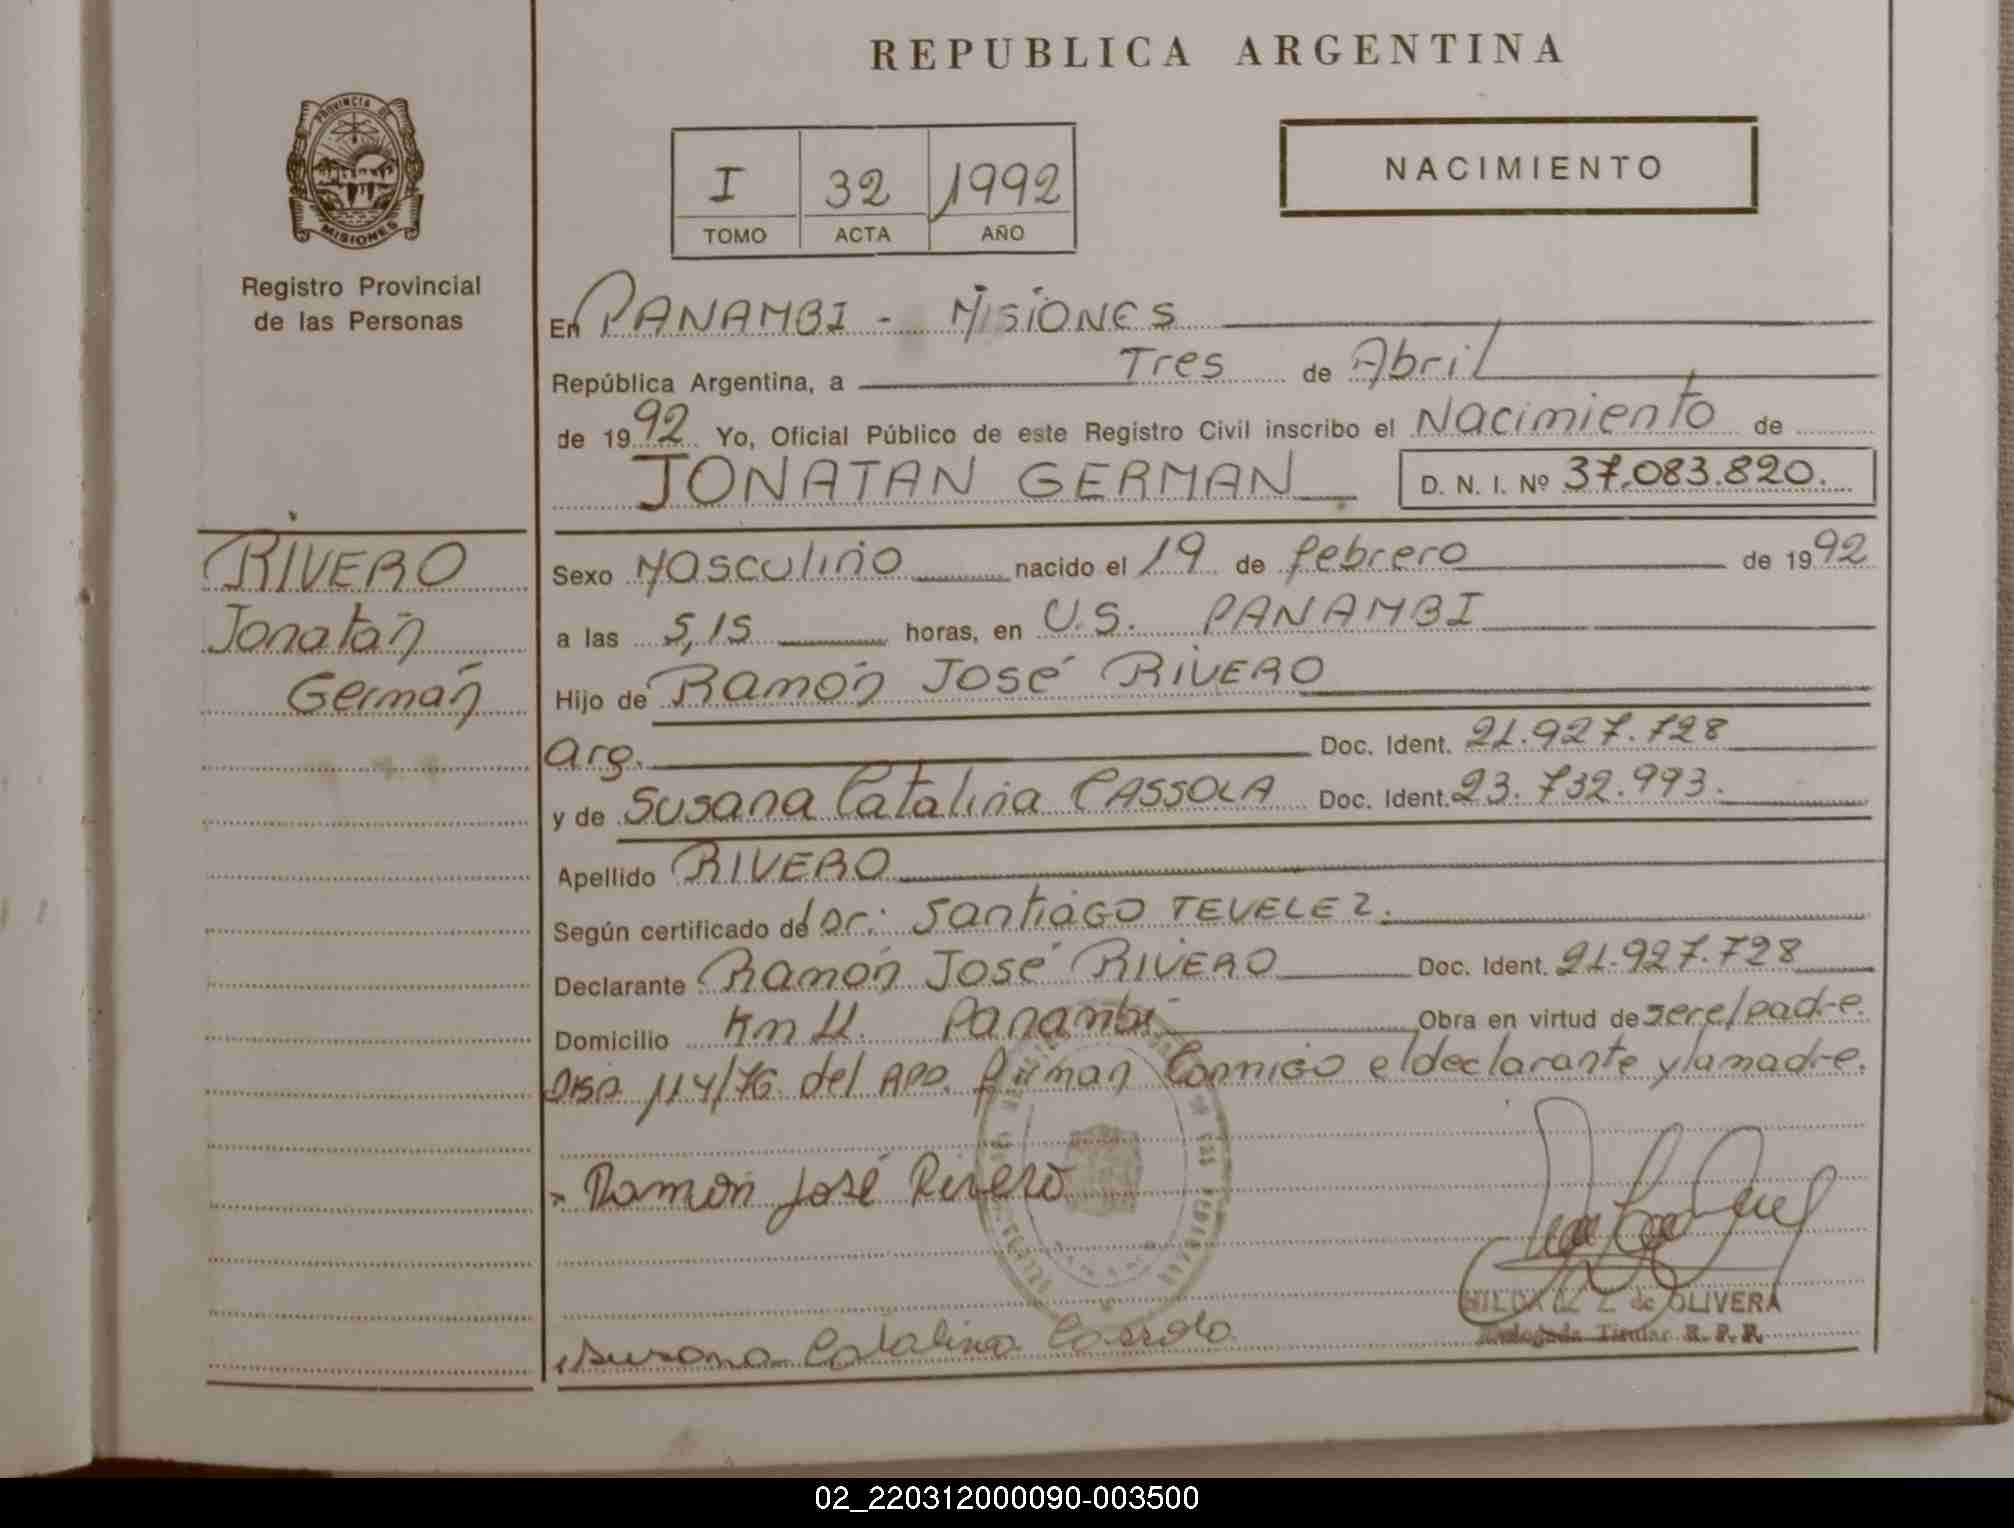 REPUBLICA ARGENTINA
PROVINCIA DE
MISIONES
Registro Provincial
de las Personas
I 32 1992
TOMO ACTA AÑO
NACIMIENTO
En PANAMBI - MISIONES
República Argentina, a Tres de Abril
de 1992 Yo, Oficial Público de este Registro Civil inscribo el Nacimiento de
JONATAN GERMAN D. N. I. Nº 37.083.820.
RIVERO
Jonatan
German
Sexo Masculino nacido el 19 de febrero de 1992
a las 5,15 horas, en U.S. PANAMBI
Hijo de Ramón José RIVERO
arg. Doc. Ident. 21.927.728
y de Susana Catalina CASSOLA Doc. Ident. 23.732.993.
Apellido RIVERO
Según certificado de Dr: Santiago TEVELEZ.
Declarante Ramón José RIVERO Doc. Ident. 21.927.728
Domicilio Km 11. Panambi Obra en virtud de ser el padre.
Disp 114/76 del APD. firman Conmigo el declarante y la madre.
Ramon José Rivero
HILDA Z. de OLIVERA
Delegada Titular R. P. P.
Susana Catalina Cassola
02_220312000090-003500